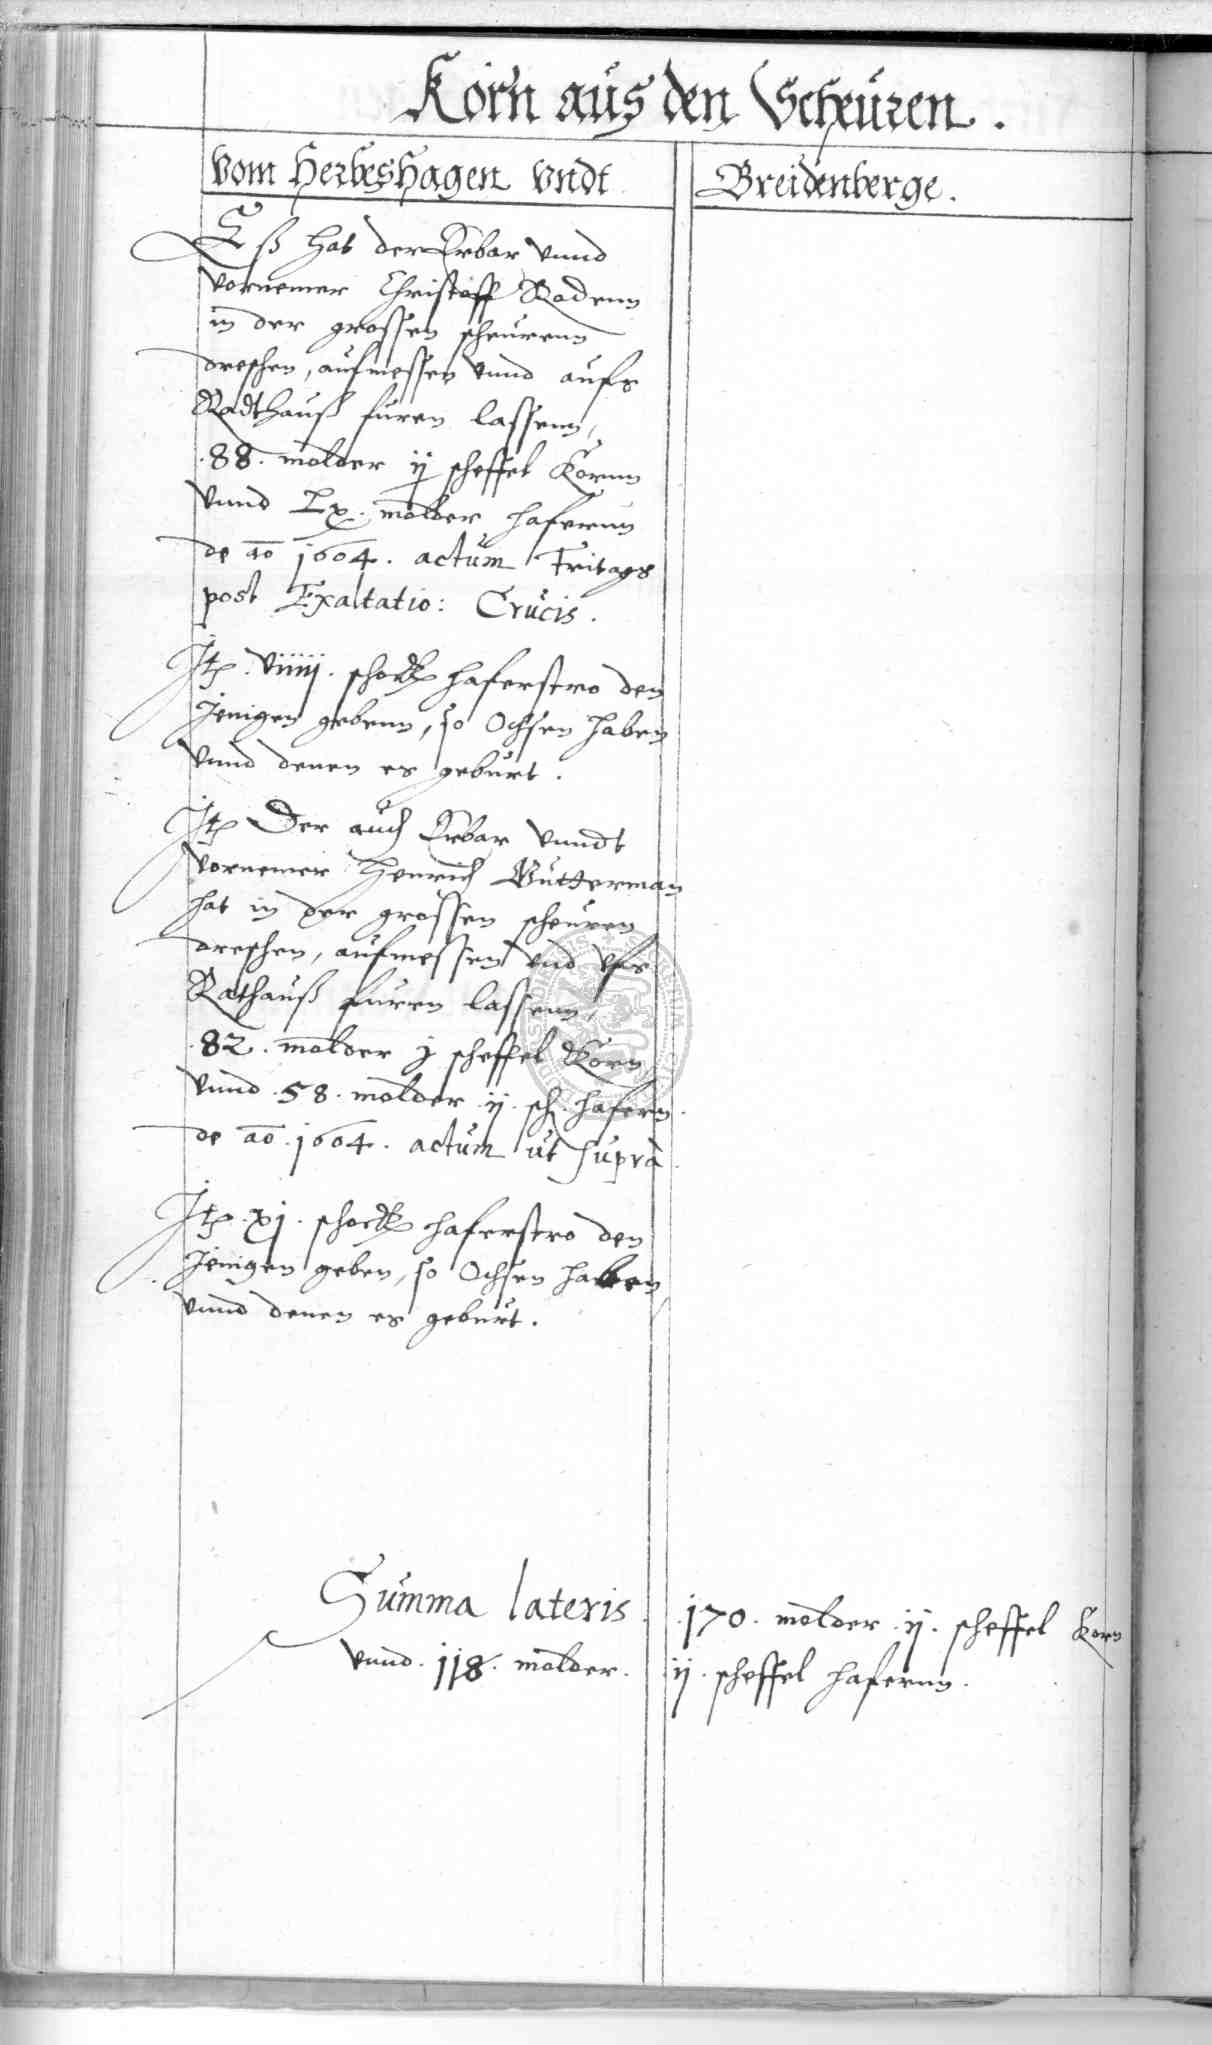 Korn aus den Scheuren.
vom Herbeshagen vndt Breidenberge.
Eß hat der Erbar vnnd
vornemer Christoff Rodenn
in der grossen scheurenn
dreschen, aufmessen vnnd aufs
Radthauß furen lassenn,
.88. molder ij scheffel Kornn
vnnd Lx. molder hafernn
de ao 1604. actum Fritags
post Exaltatio: Crucis.
Itp. viiij. schock haferstro den
Jenigen gebenn, so Ochsen haben
vnnd denen es geburt.
Itp Der auch Erbar vnndt
vornemer Henrich Butterman
hat in der grossen scheuren
dreschen, aufmessen vnd vfs
Rathauß furen lassenn,
.82. molder j scheffel Korn
vnnd .58. molder .ij. sch. hafern.
de ao .1604. actum ut suprà.
Itp .xj. schock haferstro den
Jenigen geben, so Ochsen haben,
vnnd denen es geburt.
Summa lateris. .170. molder .ij. scheffel Korn
vnnd .118. molder. ij. scheffel hafernn.